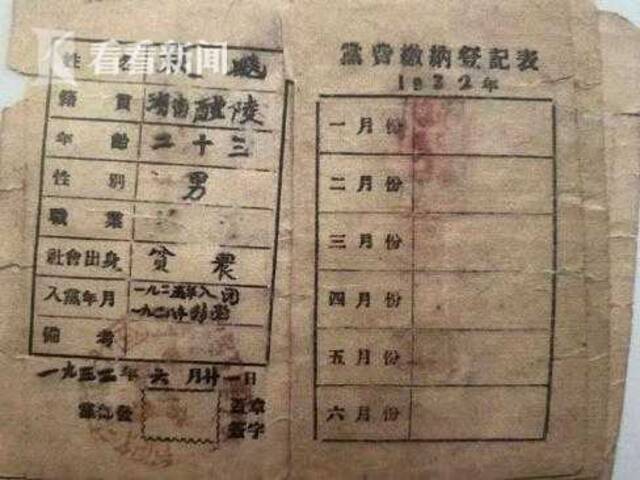 看看新闻
姓 名 飚
籍 貫 湖南醴陵
年 齡 二十三
性 別 男
職 業
社會出身 貧農
入黨年月 一九二五年入团
一九二八年轉黨
備 考
一九三二年 六 月廿一日
黨部發 蓋章
簽字
黨費繳納登記表
1932年
一月份
二月份
三月份
四月份
五月份
六月份